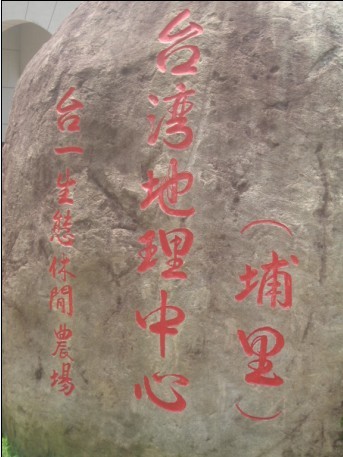 （埔里）
台湾地理中心
台一生態休閒農場